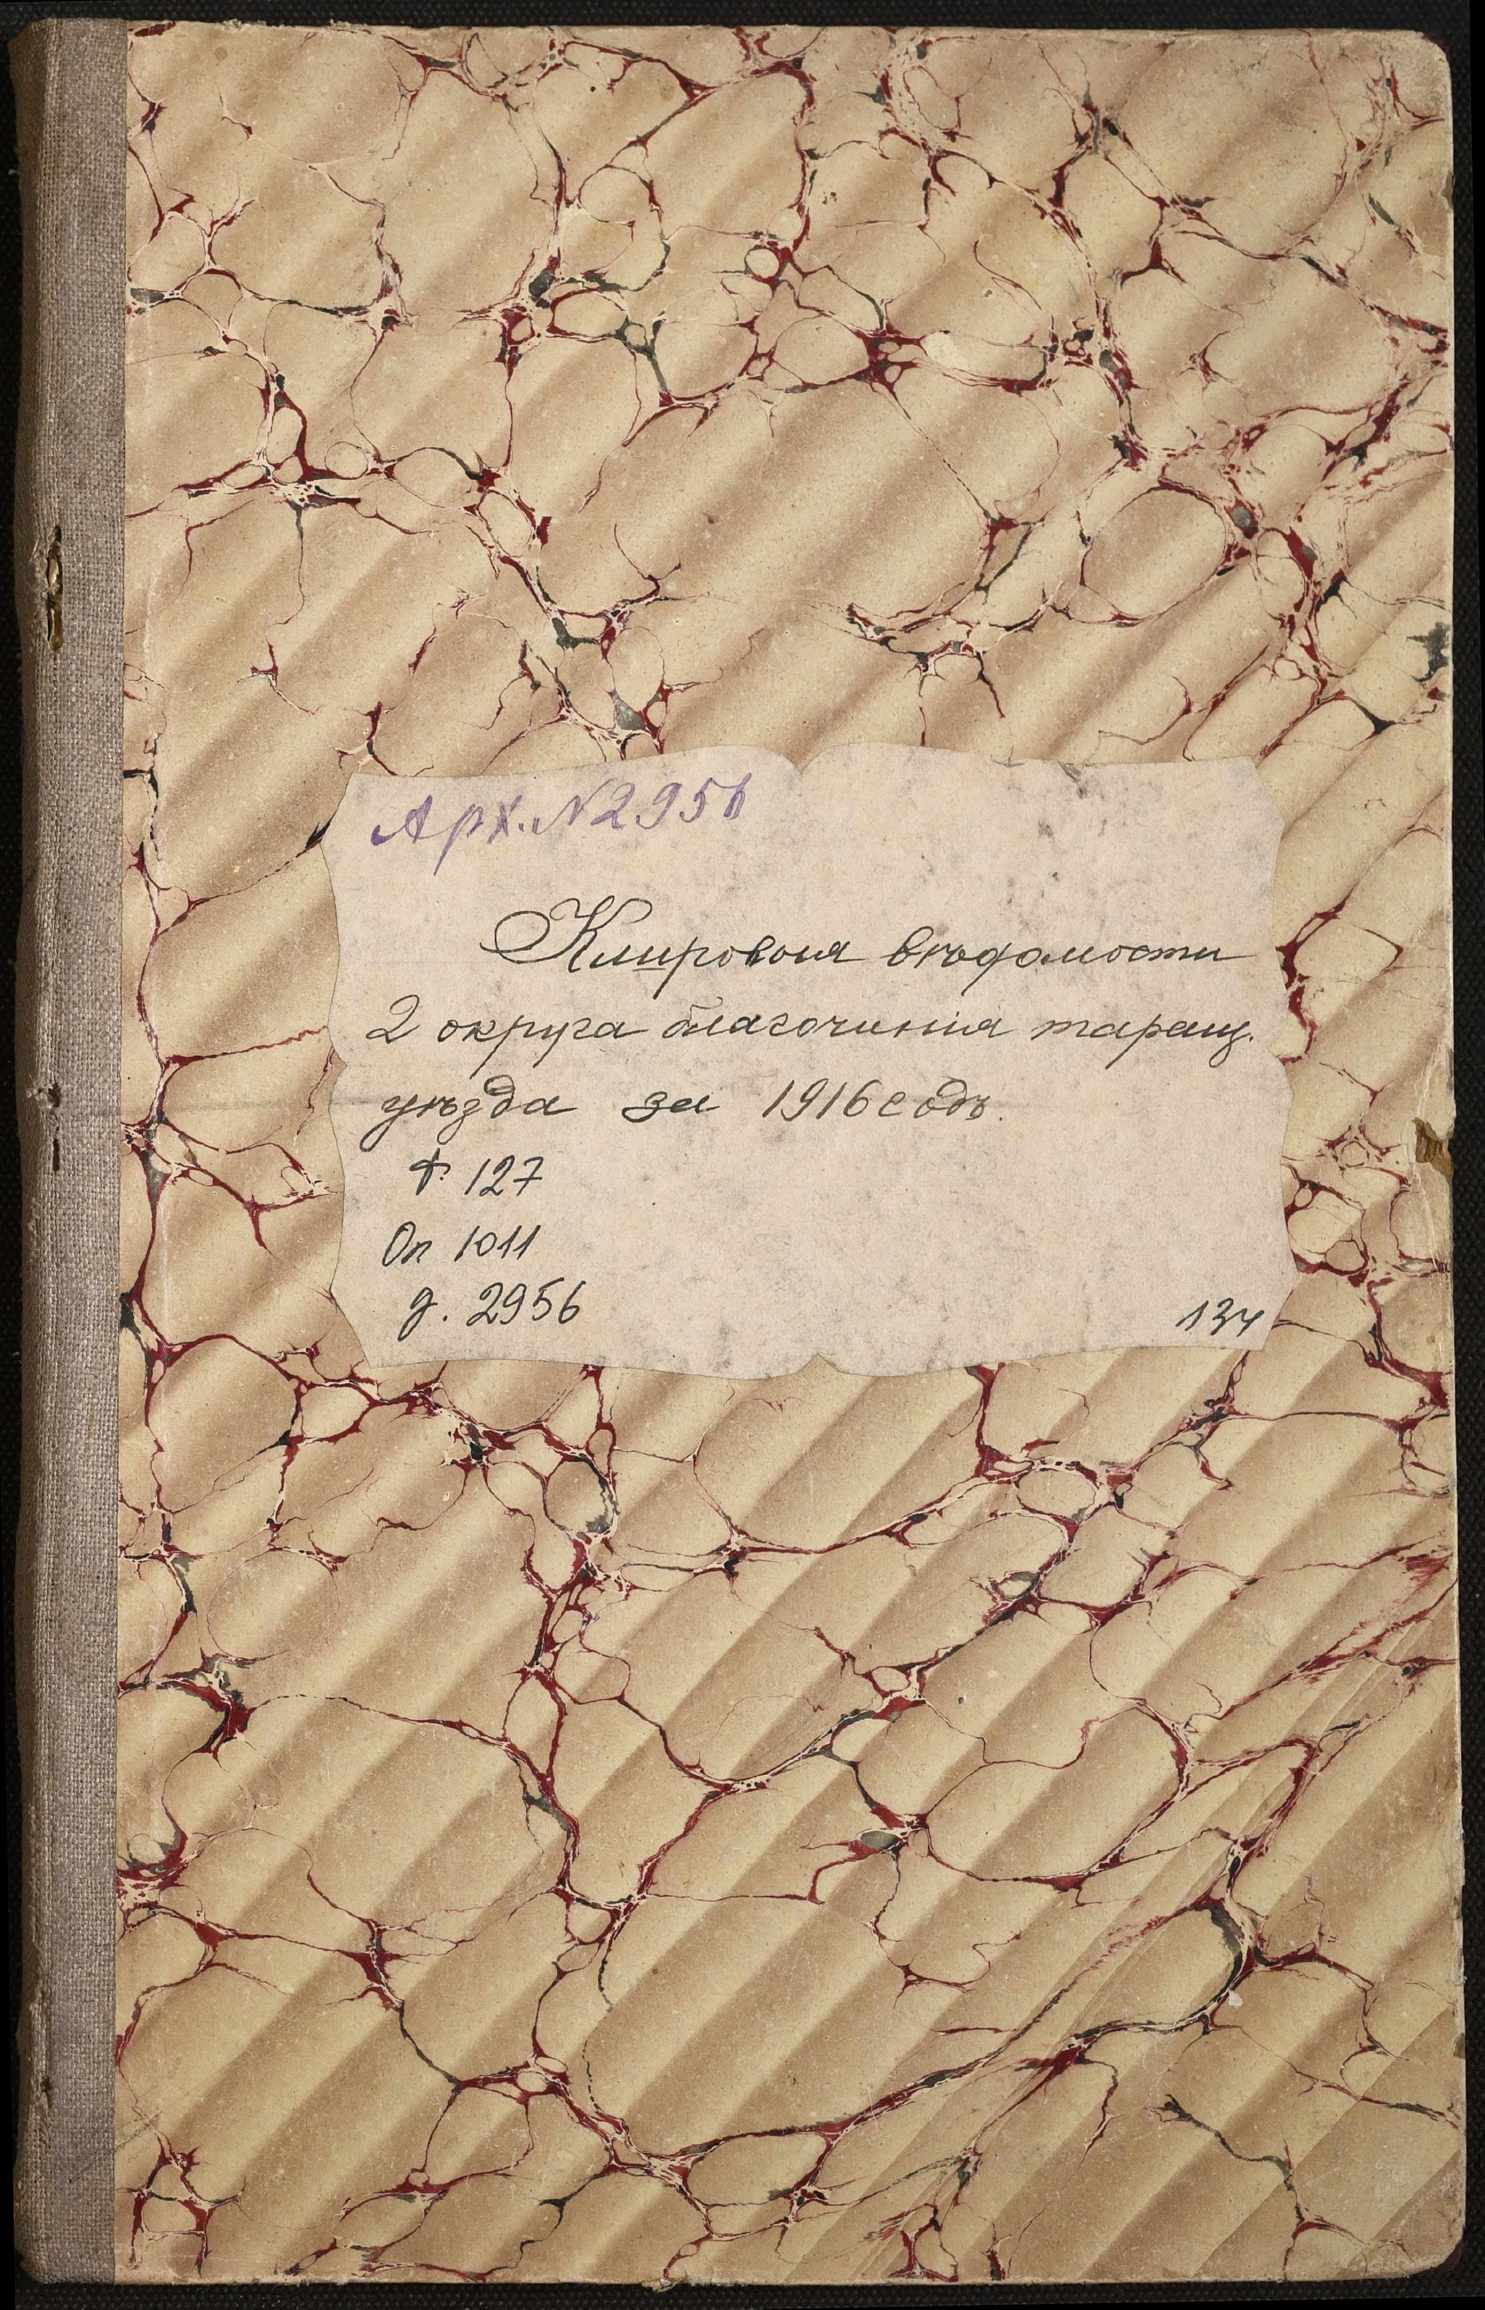 Арх. №2956
Клировыя вѣдомости
2 округа благочинія таращ.
уѣзда за 1916 годъ.
Ф. 127
Оп 1011
д. 2956
134